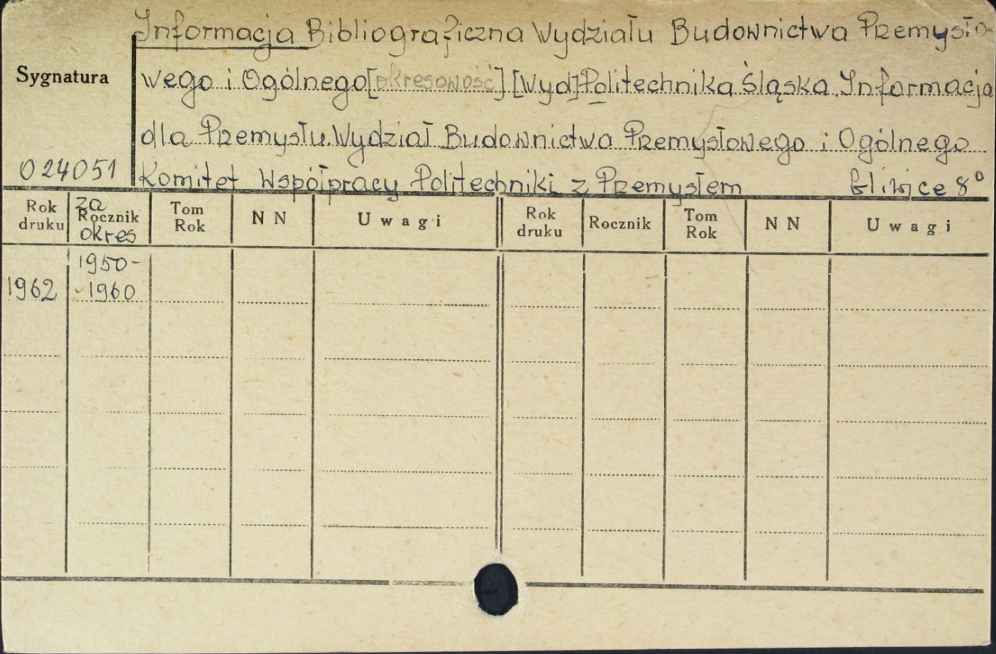 Informacja Bibliograficzna Wydziału Budownictwa Przemysło-
Sygnatura
wego i Ogólnego [okresowość] [Wyd] Politechnika Śląska. Informacja
dla Przemysłu. Wydział Budownictwa Przemysłowego i Ogólnego
024051
Komitet Współpracy Politechniki z Przemysłem Gliwice 8°
Rok druku za Rocznik okres Tom Rok N N Uwagi Rok druku Rocznik Tom Rok N N Uwagi
1950-
1962 -1960